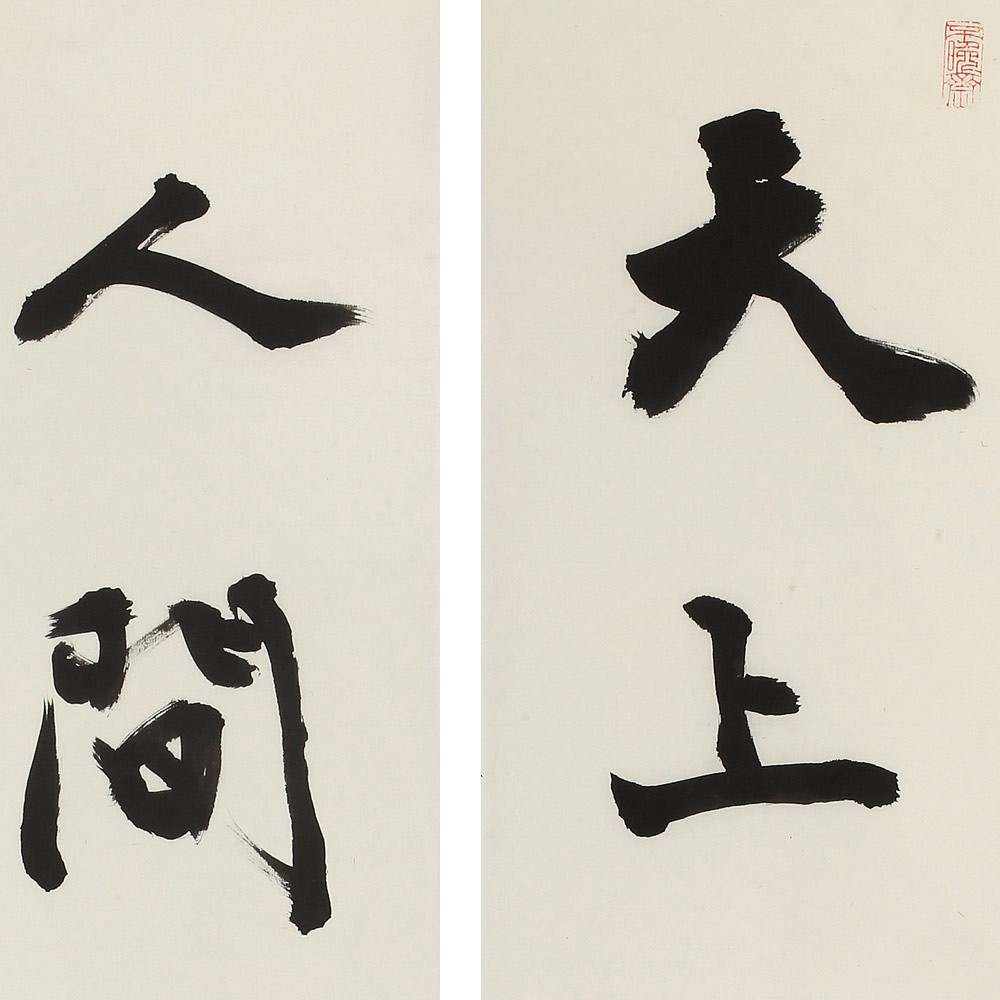 天上
人間